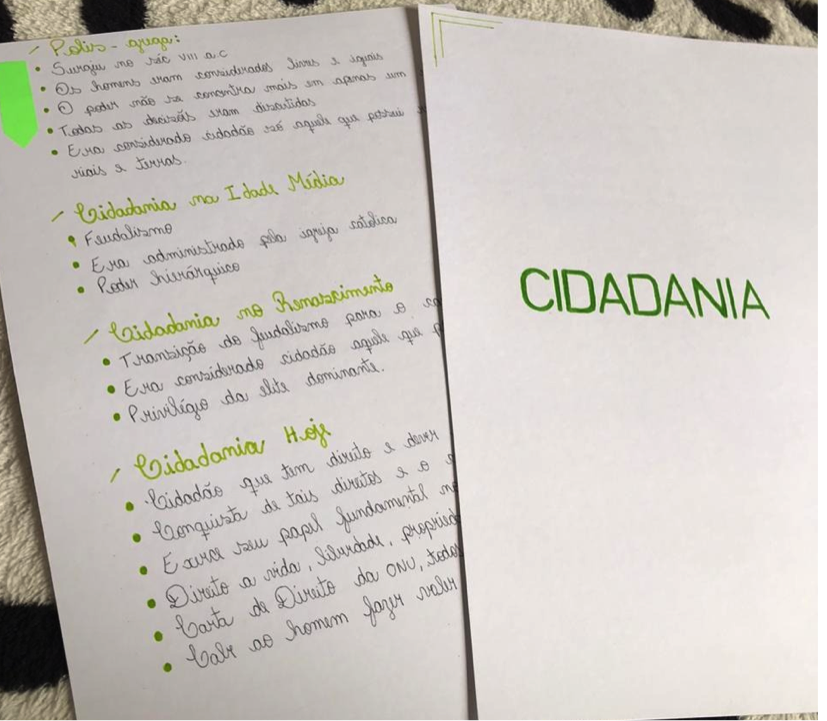 Polis - grega:
• Surgiu no séc VIII a.c
• Os homens eram considerados livres e iguais
• O poder não se concentra mais em apenas um
• Todas as decisões eram discutidas
• Era considerado cidadão só aquele que possui
riais e terras.
Cidadania na Idade Mídia
• Feudalismo
• Era administrado pela igreja católica
• Poder hierárquico
Cidadania no Renascimento
• Transição do feudalismo para o
• Era considerado cidadão aquele que
• Privilégio da elite dominante.
Cidadania Hoje
• Cidadão que tem direito e dever
• Conquista de tais direitos e o
• Exerce seu papel fundamental
• Direito a vida, liberdade, propried
• Carta de Direito da ONU, todos
• Cabe ao homem fazer valer
CIDADANIA